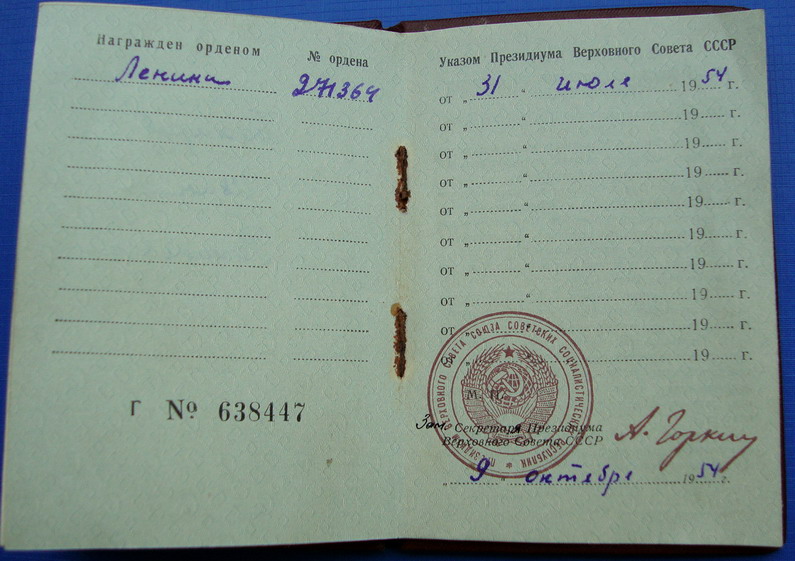 Награжден орденом
№ ордена
Ленина
271364
Г № 638447
Указом Президиума Верховного Совета СССР
от „ 31 “ июля 1954 г.
от „ “ 19 г.
от „ “ 19 г.
от „ “ 19 г.
от „ “ 19 г.
от „ “ 19 г.
от „ “ 19 г.
от „ “ 19 г.
от „ “ 19 г.
„ “ 19 г.
ПРЕЗИДИУМ ВЕРХОВНОГО СОВЕТА СОЮЗА СОВЕТСКИХ СОЦИАЛИСТИЧЕСКИХ РЕСПУБЛИК
М. П.
Зам. Секретаря Президиума
Верховного Совета СССР
А. Горкин
„ 9 “ октября 1954 г.